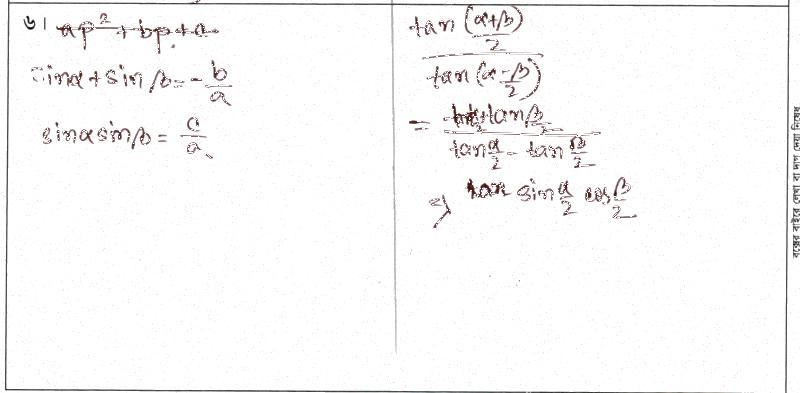 ৬। ap² + bp + c
sinα + sinβ = - b/a
sinα sinβ = c/a
tan (α+β)/2 / tan (α-β)/2
= tan α/2 + tan β/2 / tan α/2 - tan β/2
⇒ sin α/2 cos β/2
বক্সের বাইরে লেখা বা দাগ দেয়া নিষেধ